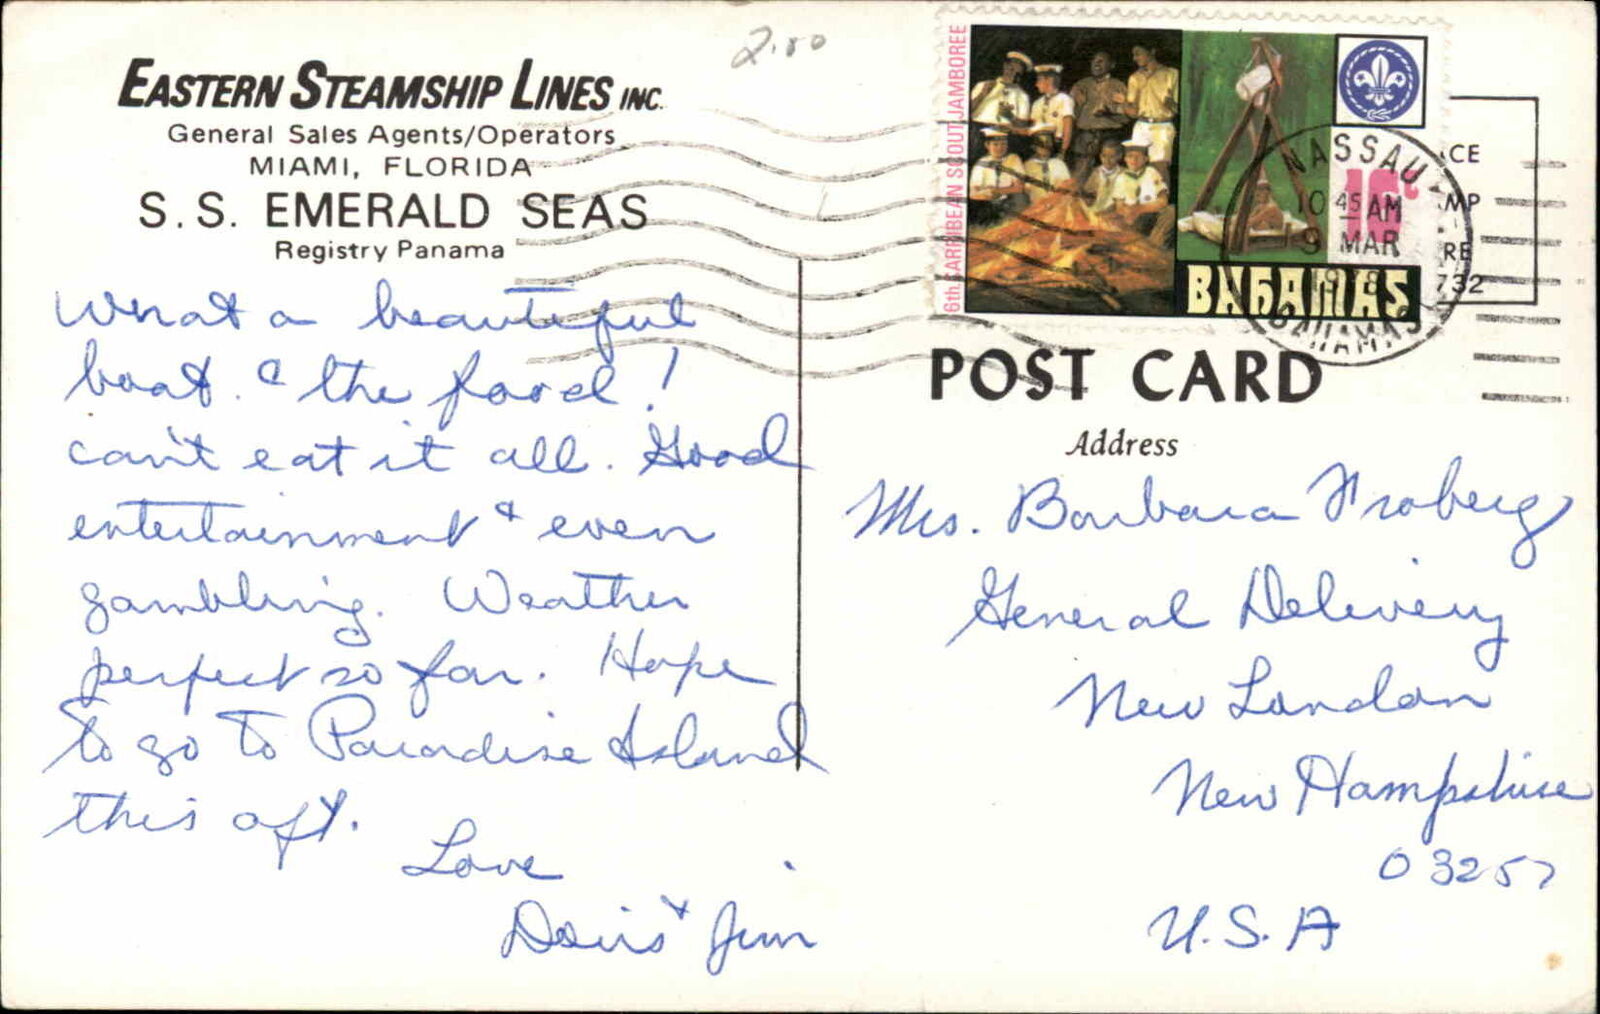 2.00
EASTERN STEAMSHIP LINES INC.
General Sales Agents/Operators
MIAMI, FLORIDA
S. S. EMERALD SEAS
Registry Panama
What a beautiful
boat. & the food!
can't eat it all. Good
entertainment & even
gambling. Weather
perfect so far. Hope
to go to Paradise Island
this aft.
Love
Doris & Jim
6th CARRIBEAN SCOUT JAMBOREE
16c
BAHAMAS
NASSAU
10 45 AM
9 MAR
1978
BAHAMAS
CE
MP
RE
732
POST CARD
Address
Mrs. Barbara Froberg
General Delivery
New London
New Hampshire
03257
U.S.A